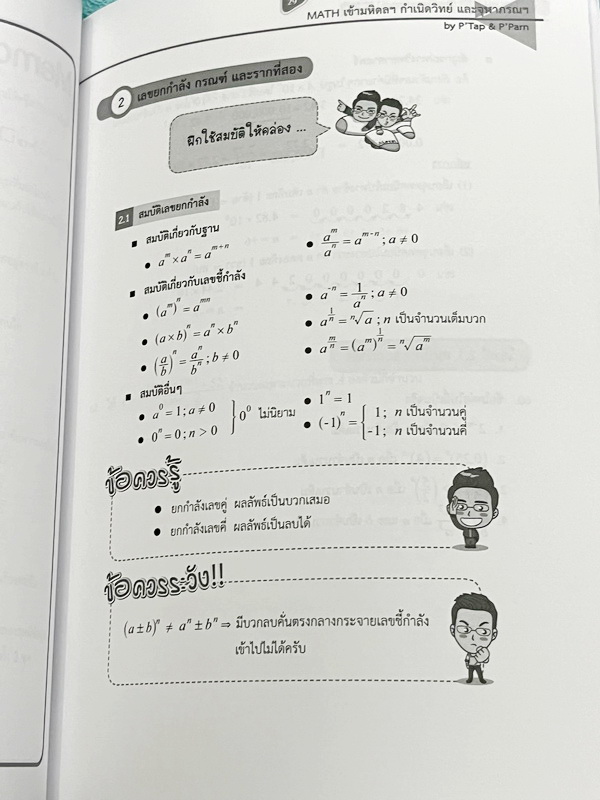 MATH เข้ามหิดลฯ กำเนิดวิทย์ และจุฬาภรณฯ
by P'Tap & P'Parn
2 เลขยกกำลัง กรณฑ์ และรากที่สอง
ฝึกใช้สมบัติให้คล่อง ...
2.1 สมบัติเลขยกกำลัง
■ สมบัติเกี่ยวกับฐาน
● a^m × a^n = a^{m+n}
● \frac{a^m}{a^n} = a^{m-n} ; a ≠ 0
■ สมบัติเกี่ยวกับเลขชี้กำลัง
● (a^m)^n = a^{mn}
● a^{-n} = \frac{1}{a^n} ; a ≠ 0
● (a × b)^n = a^n × b^n
● a^{\frac{1}{n}} = \sqrt[n]{a} ; n เป็นจำนวนเต็มบวก
● (\frac{a}{b})^n = \frac{a^n}{b^n} ; b ≠ 0
● a^{\frac{m}{n}} = (a^m)^{\frac{1}{n}} = \sqrt[n]{a^m}
■ สมบัติอื่นๆ
● a^0 = 1 ; a ≠ 0
● 0^n = 0 ; n > 0
} 0^0 ไม่นิยาม
● 1^n = 1
● (-1)^n = { 1 ; n เป็นจำนวนคู่
-1 ; n เป็นจำนวนคี่
ข้อควรรู้
● ยกกำลังเลขคู่ ผลลัพธ์เป็นบวกเสมอ
● ยกกำลังเลขคี่ ผลลัพธ์เป็นลบได้
ข้อควรระวัง!!
(a ± b)^n ≠ a^n ± b^n ⇒ มีบวกลบคั่นตรงกลางกระจายเลขชี้กำลัง
เข้าไปไม่ได้ครับ